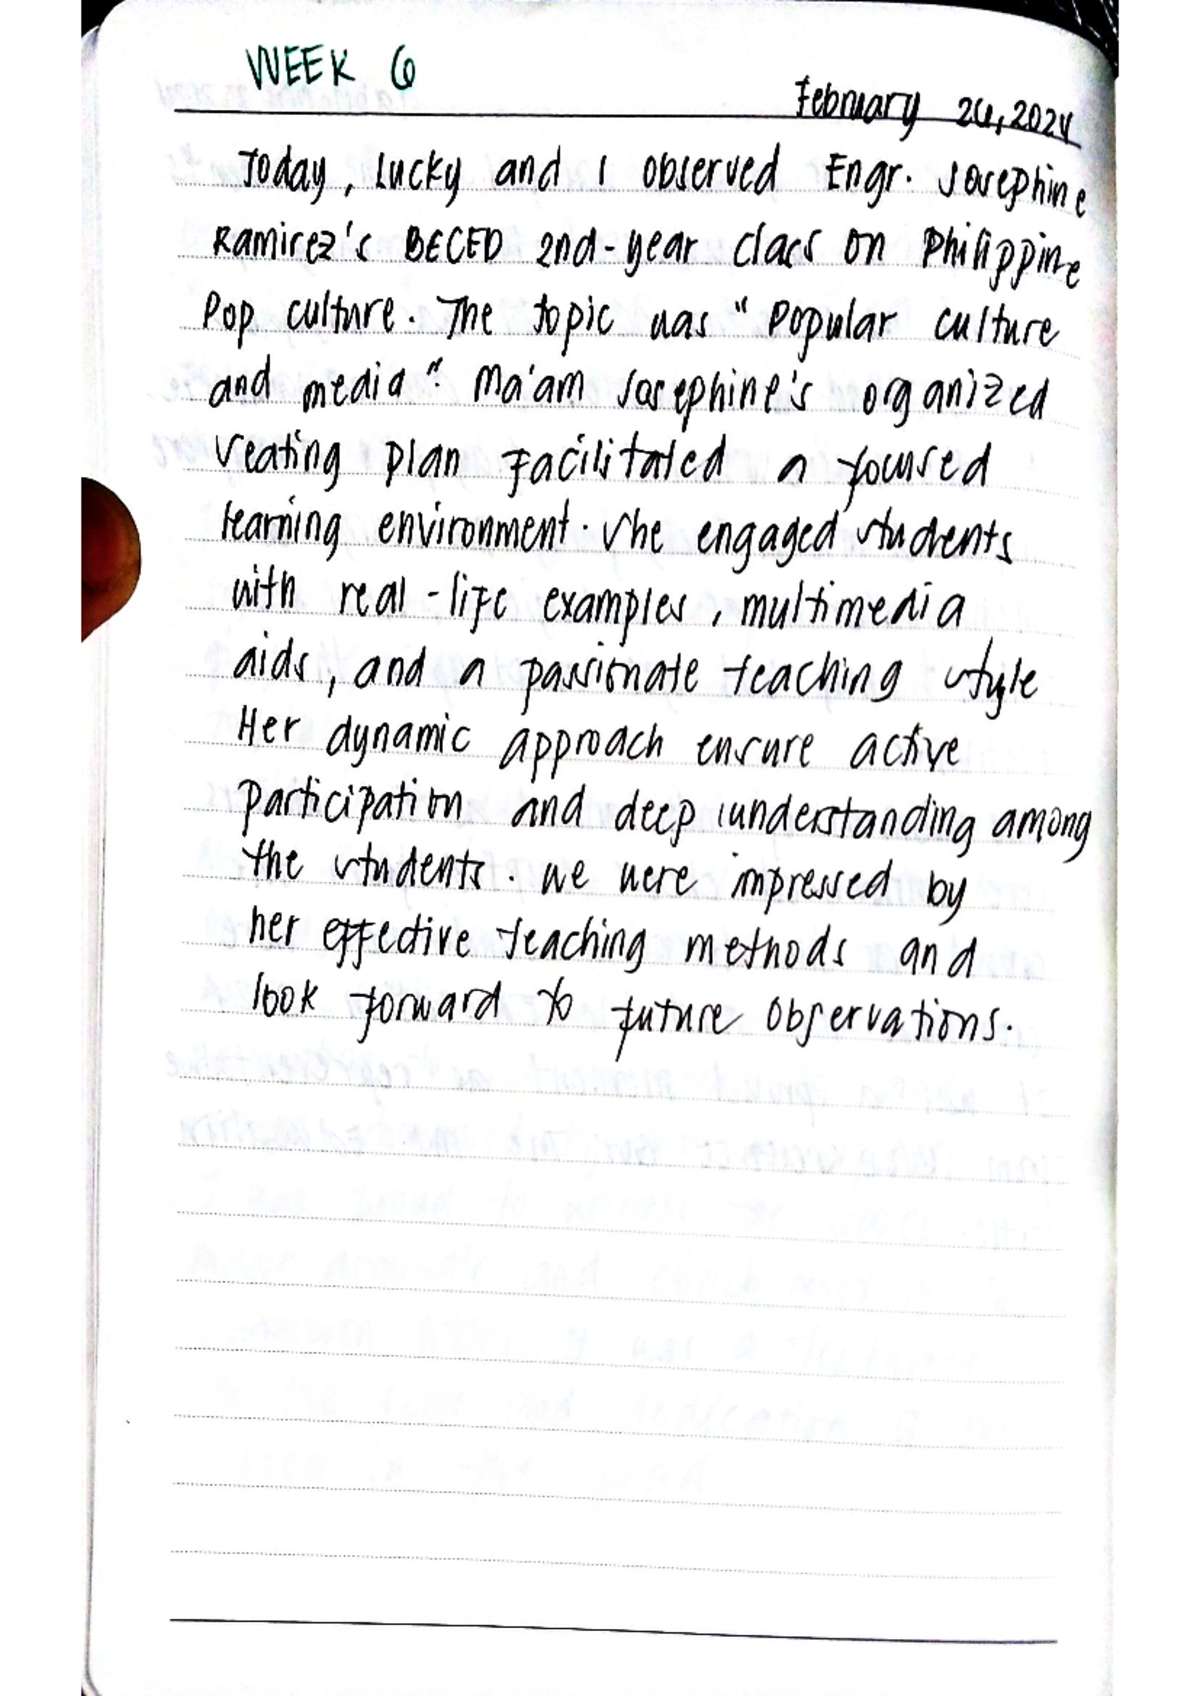 WEEK 6
February 26, 2024
Today, Lucky and I observed Engr. Josephine
Ramirez's BECED 2nd-year class on Philippine
Pop culture. The topic was "Popular culture
and media". Ma'am Josephine's organized
seating plan facilitated a focused
learning environment. She engaged students
with real-life examples, multimedia
aids, and a passionate teaching style
Her dynamic approach ensure active
participation and deep understanding among
the students. we were impressed by
her effective teaching methods and
look forward to future observations.